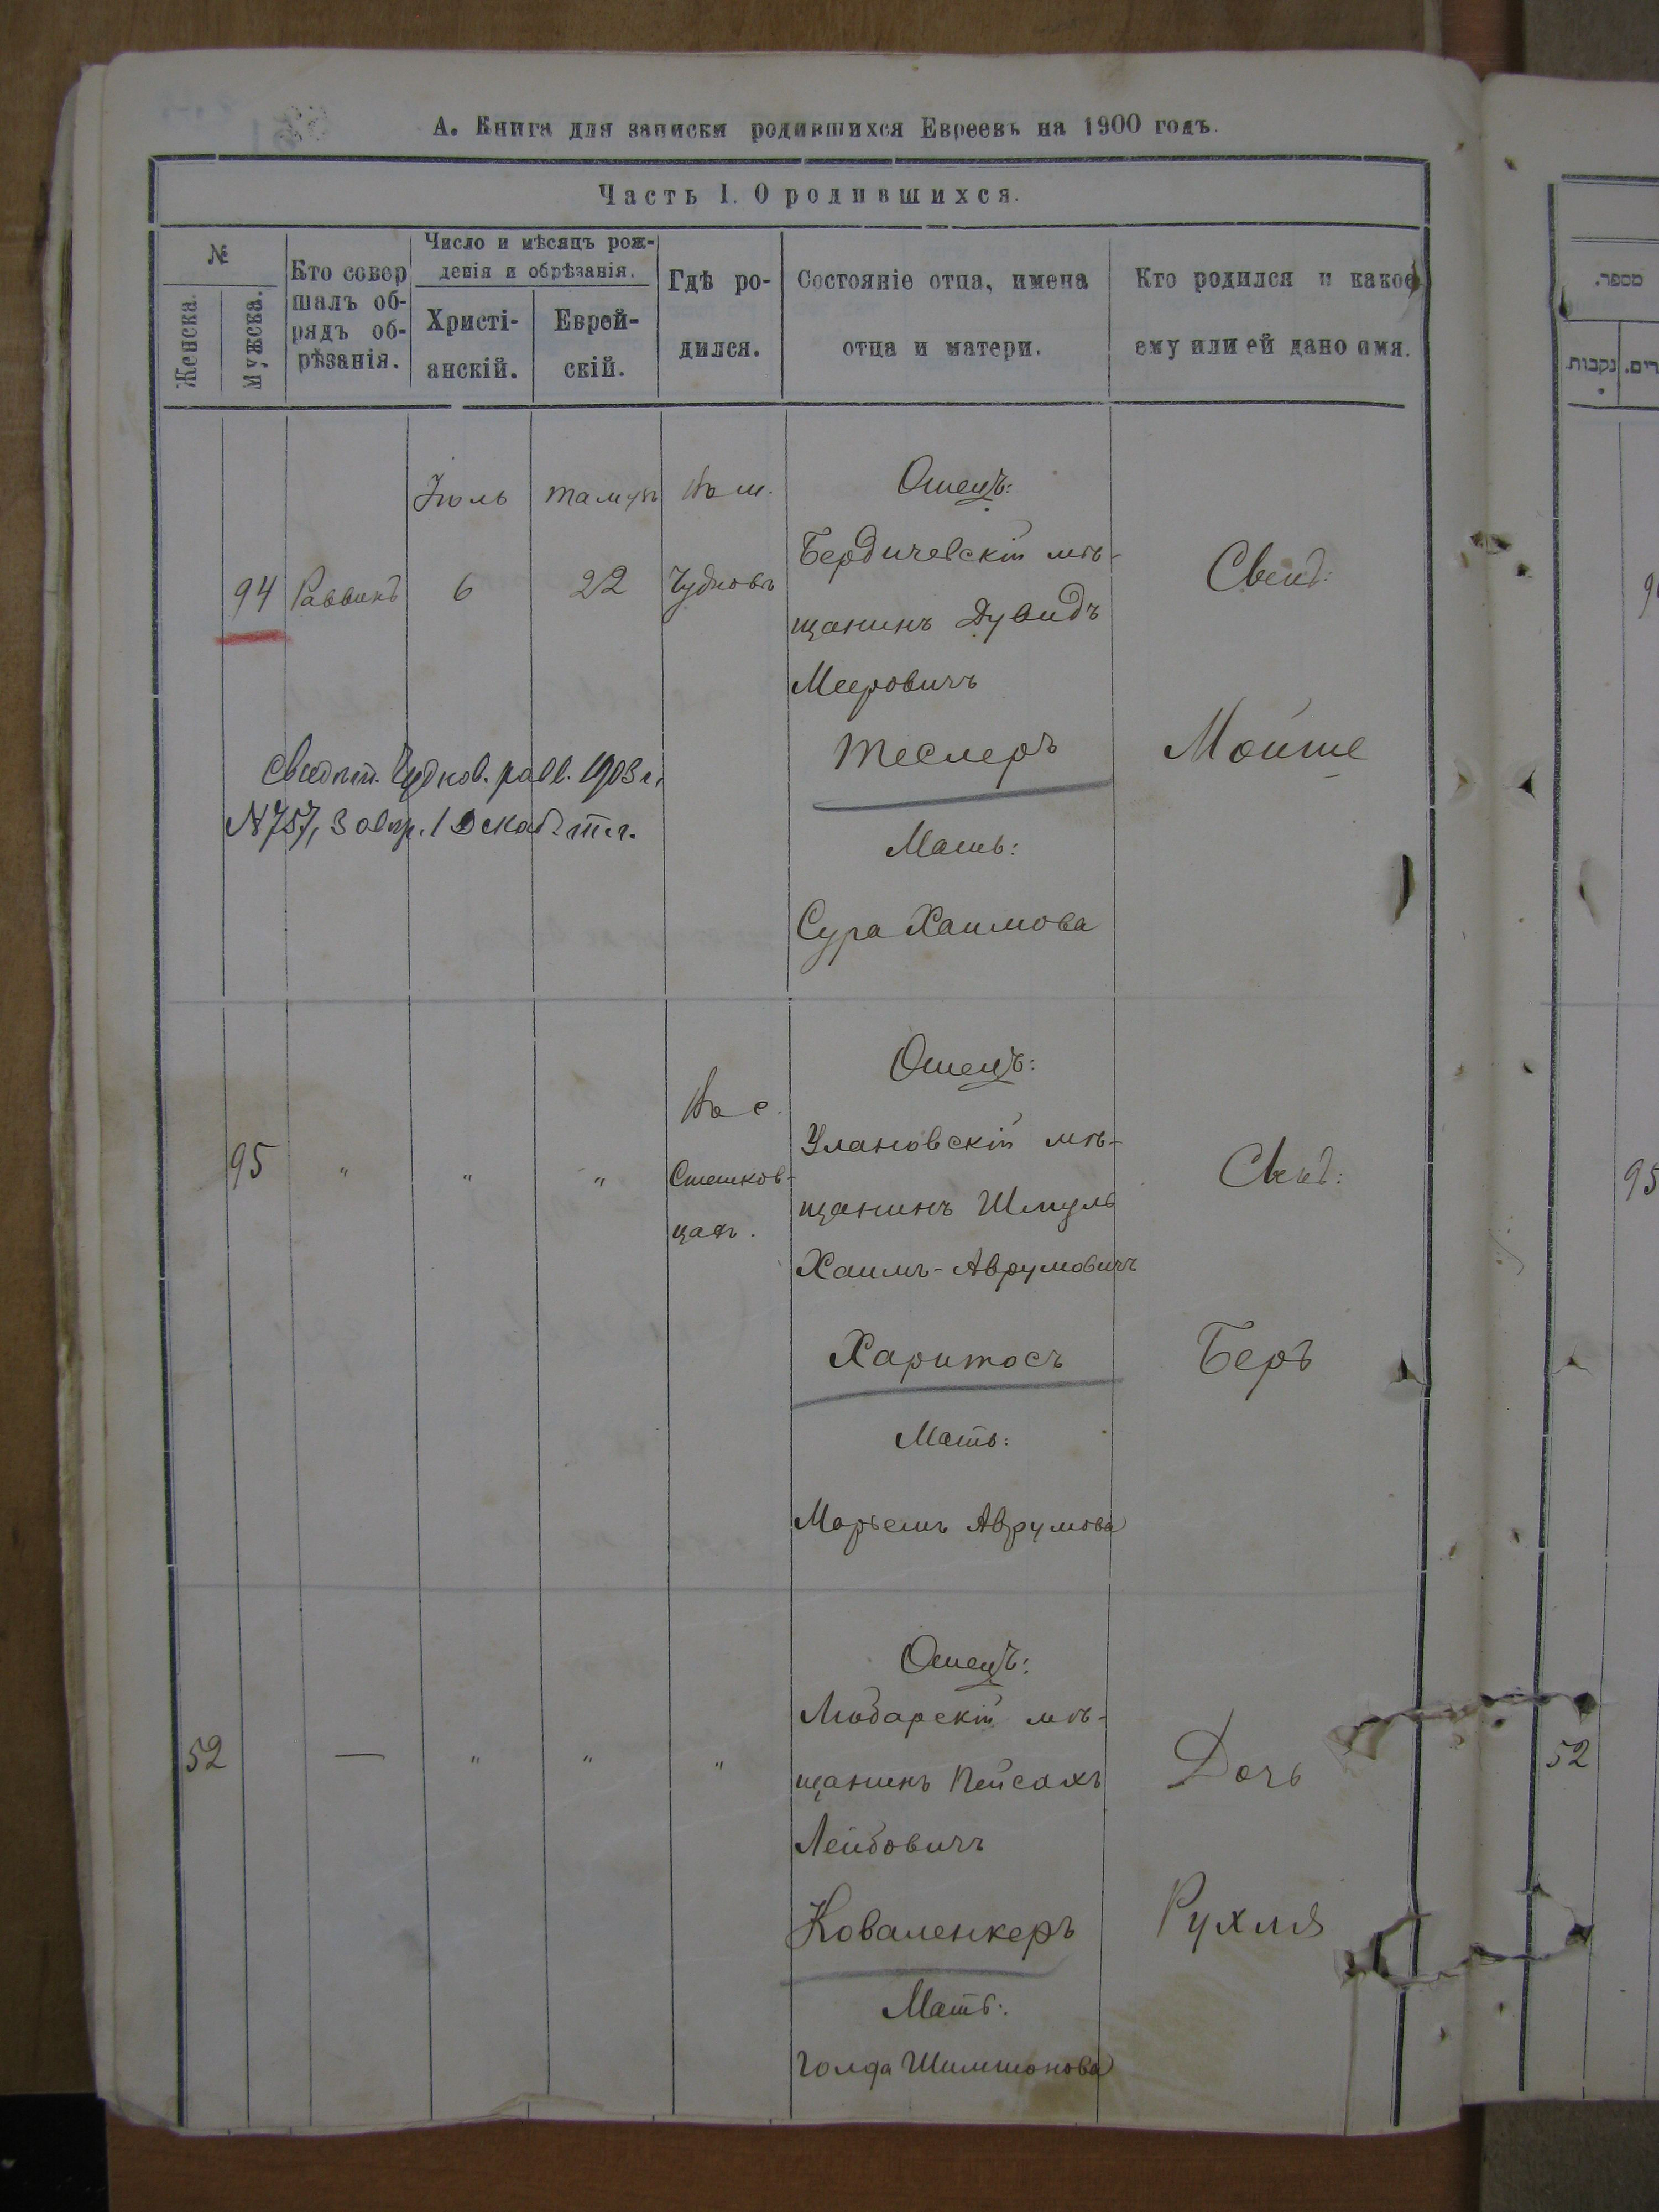 А. Книга для записки родившихся Евреевъ на 1900 годъ.
Часть I. О родившихся.
№
Женска.
Мужска.
Кто совер
шалъ об-
рядъ об-
рѣзанія.
Число и мѣсяцъ рож-
денія и обрѣзанія.
Христі-
анскій.
Еврей-
скій.
Гдѣ ро-
дился.
Состояніе отца, имена
отца и матери.
Кто родился и какое
ему или ей дано имя.
94
Раввинъ
Іюль
6
тамузъ
22
Въ м.
Чудновъ
Отецъ:
Бердичевскій мѣ-
щанинъ Дувидъ
Мееровичъ
Теслеръ
Мать:
Сура Хаимова
Сынъ:
Мойше
Свидѣт. Чуднов. равв. 1903 г.
№ 757, 3 овпр. 1 Декаб. т.г.
95
"
"
"
Въ с.
Стетков-
цахъ.
Отецъ:
Улановскій мѣ-
щанинъ Шмуль
Хаимъ-Аврумовичъ
Харитосъ
Мать:
Марьемъ Аврумова
Сынъ:
Беръ
52
—
"
"
"
Отецъ:
Любарскій мѣ-
щанинъ Пейсахъ
Лейбовичъ
Коваленкеръ
Мать:
Голда Шимшонова
Дочь
Рухля
מספר.
נקבות
רים.
95
52